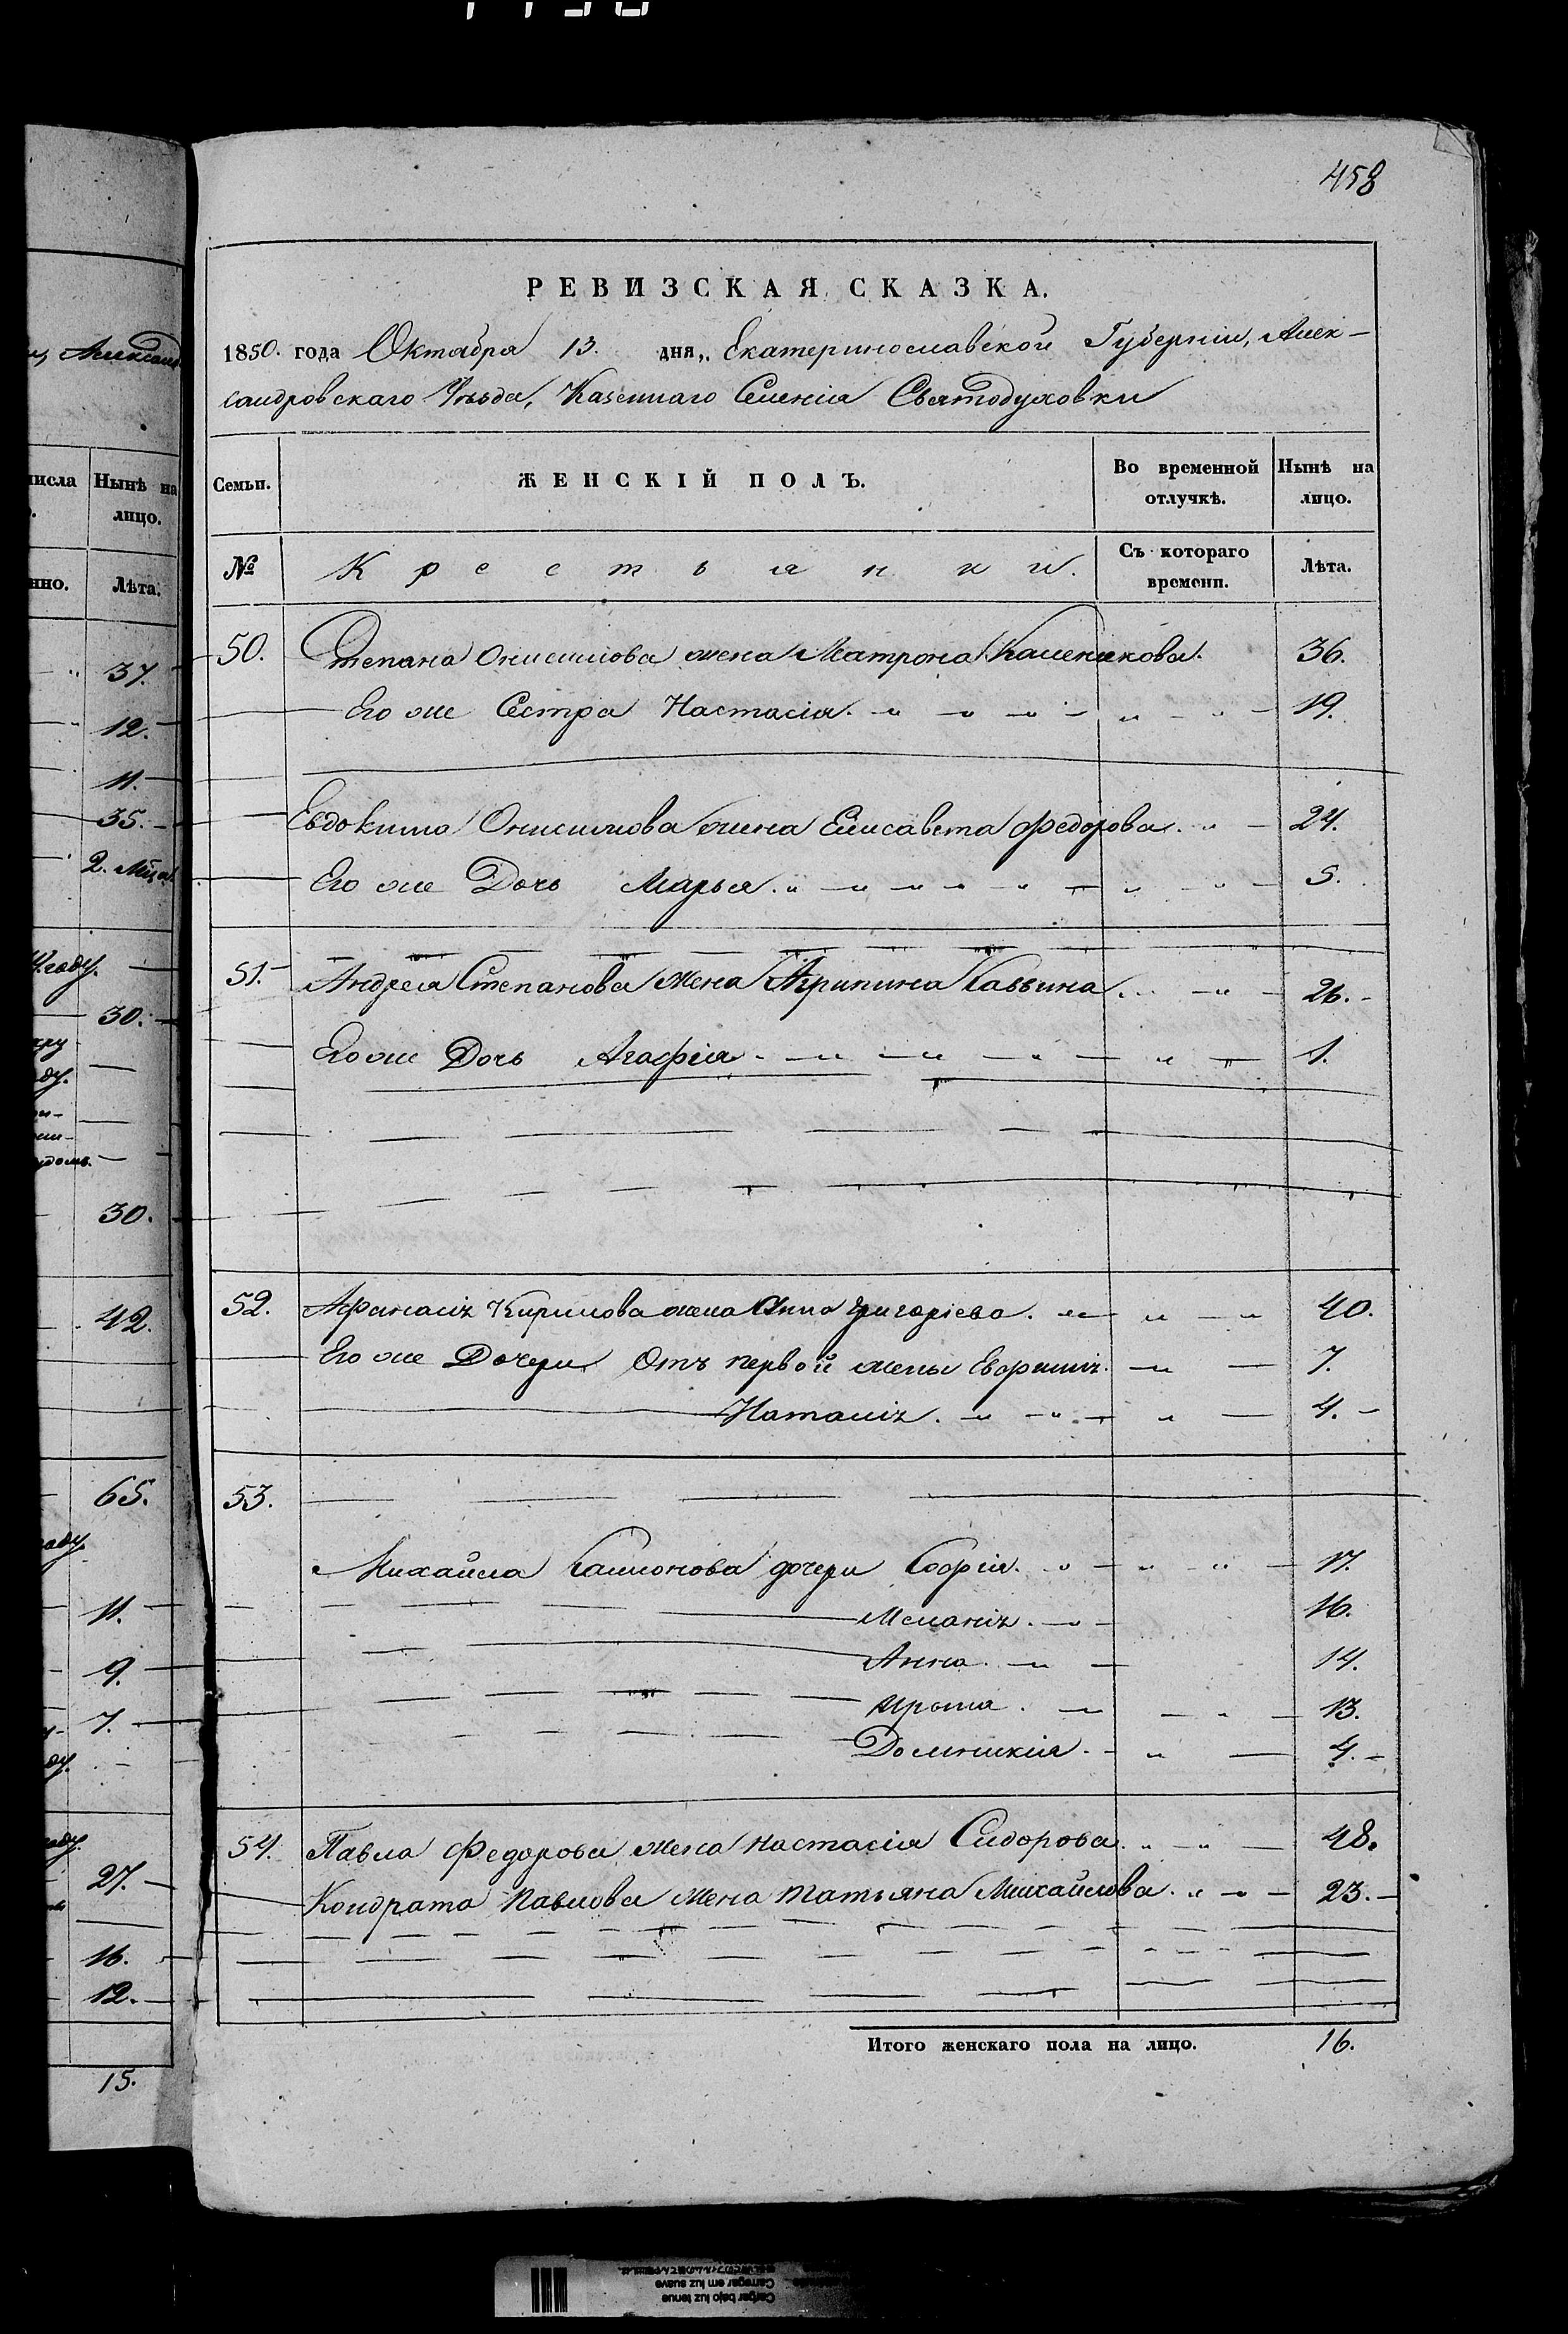 458
РЕВИЗСКАЯ СКАЗКА.
1850. года Октября 13. дня, Екатеринославской Губерніи, Алек-
сандровскаго Уѣзда, Казеннаго Селенія Святодуховки
Семьи. ЖЕНСКІЙ ПОЛЪ. Во временной отлучкѣ. Нынѣ на лицо.
№ Крестьянки. Съ котораго времени. Лѣта.
50. Степана Онисимова жена Матрона Каленикова. 36.
Его же Сестра Настасія. 19.
Евдокима Онисимова жена Елисавета Федорова. 24.
Его же Дочь Марья. 5.
51. Андрея Степанова жена Агрипина Саввина. 26.
Его же Дочь Агафія 1.
52. Афанасія Кирилова жена Анна Григоріева. 40.
Его же Дочери Отъ первой жены Евфимія. 7.
Наталія. 4.
53.
Михайла дочери Софія. 17.
Меланія. 16.
Анна. 14.
13.
Домникія. 4.
54. Павла Федорова жена Настасія Сидорова. 48.
Кондрата Павлова жена Татьяна Михайлова. 23.
Итого женскаго пола на лицо. 16.
Александ
числа Нынѣ на
лицо.
Лѣта.
37.
12.
11.
35.
2.
году.
30.
30.
42.
65.
11.
9.
7.
27.
16.
12.
15.